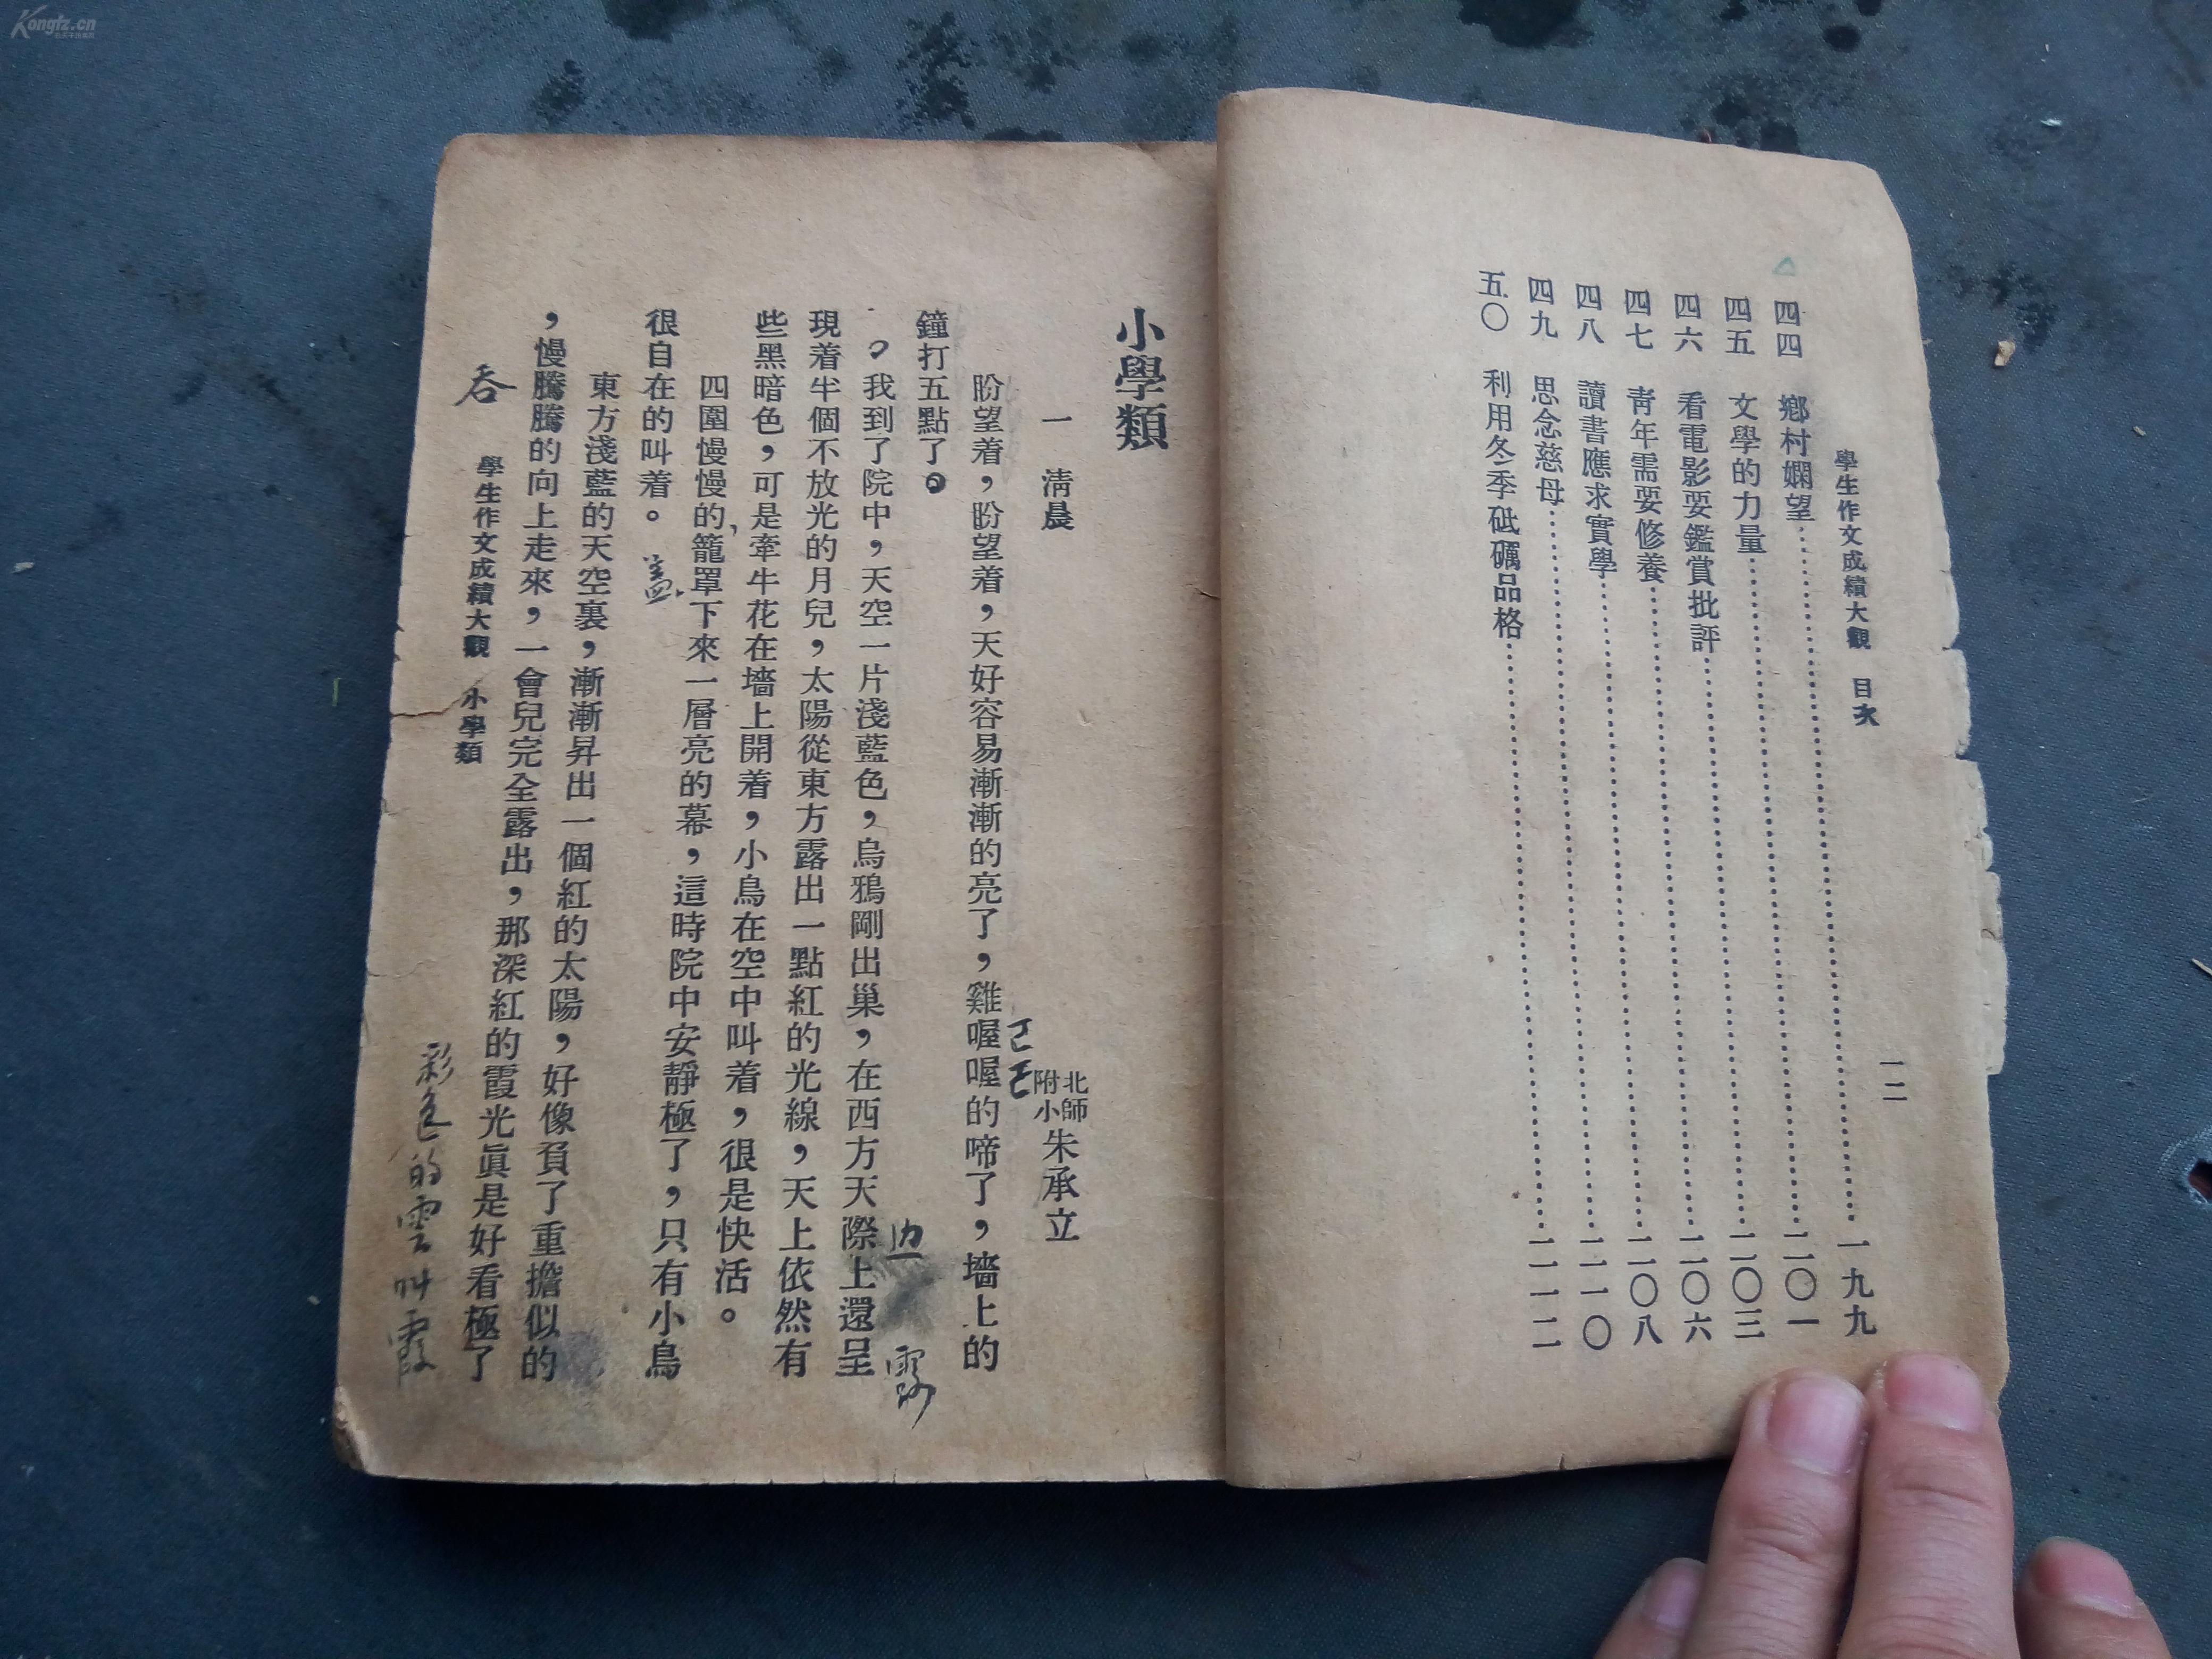 Kongfz.cn
學生作文成績大觀 目次
一二
四四 鄉村嫻望……一九九
四五 文學的力量……二〇一
四六 看電影要鑑賞批評……二〇三
四七 青年需要修養……二〇六
四八 讀書應求實學……二〇八
四九 思念慈母……二一〇
五〇 利用冬季砥礪品格……二一二
小學類
一 淸晨
北師附小朱承立
盼望着，盼望着，天好容易漸漸的亮了，雞喔喔的啼了，墻上的
鐘打五點了。
。我到了院中，天空一片淺藍色，烏鴉剛出巢，在西方天際上還呈
現着半個不放光的月兒，太陽從東方露出一點紅的光線，天上依然有
些黑暗色，可是牽牛花在墻上開着，小鳥在空中叫着，很是快活。
四圍慢慢的籠罩下來一層亮的幕，這時院中安靜極了，只有小鳥
很自在的叫着。
蓋
東方淺藍的天空裏，漸漸昇出一個紅的太陽，好像負了重擔似的
，慢騰騰的向上走來，一會兒完全露出，那深紅的霞光眞是好看極了
學生作文成績大觀 小學類
彩色的雲叫霞